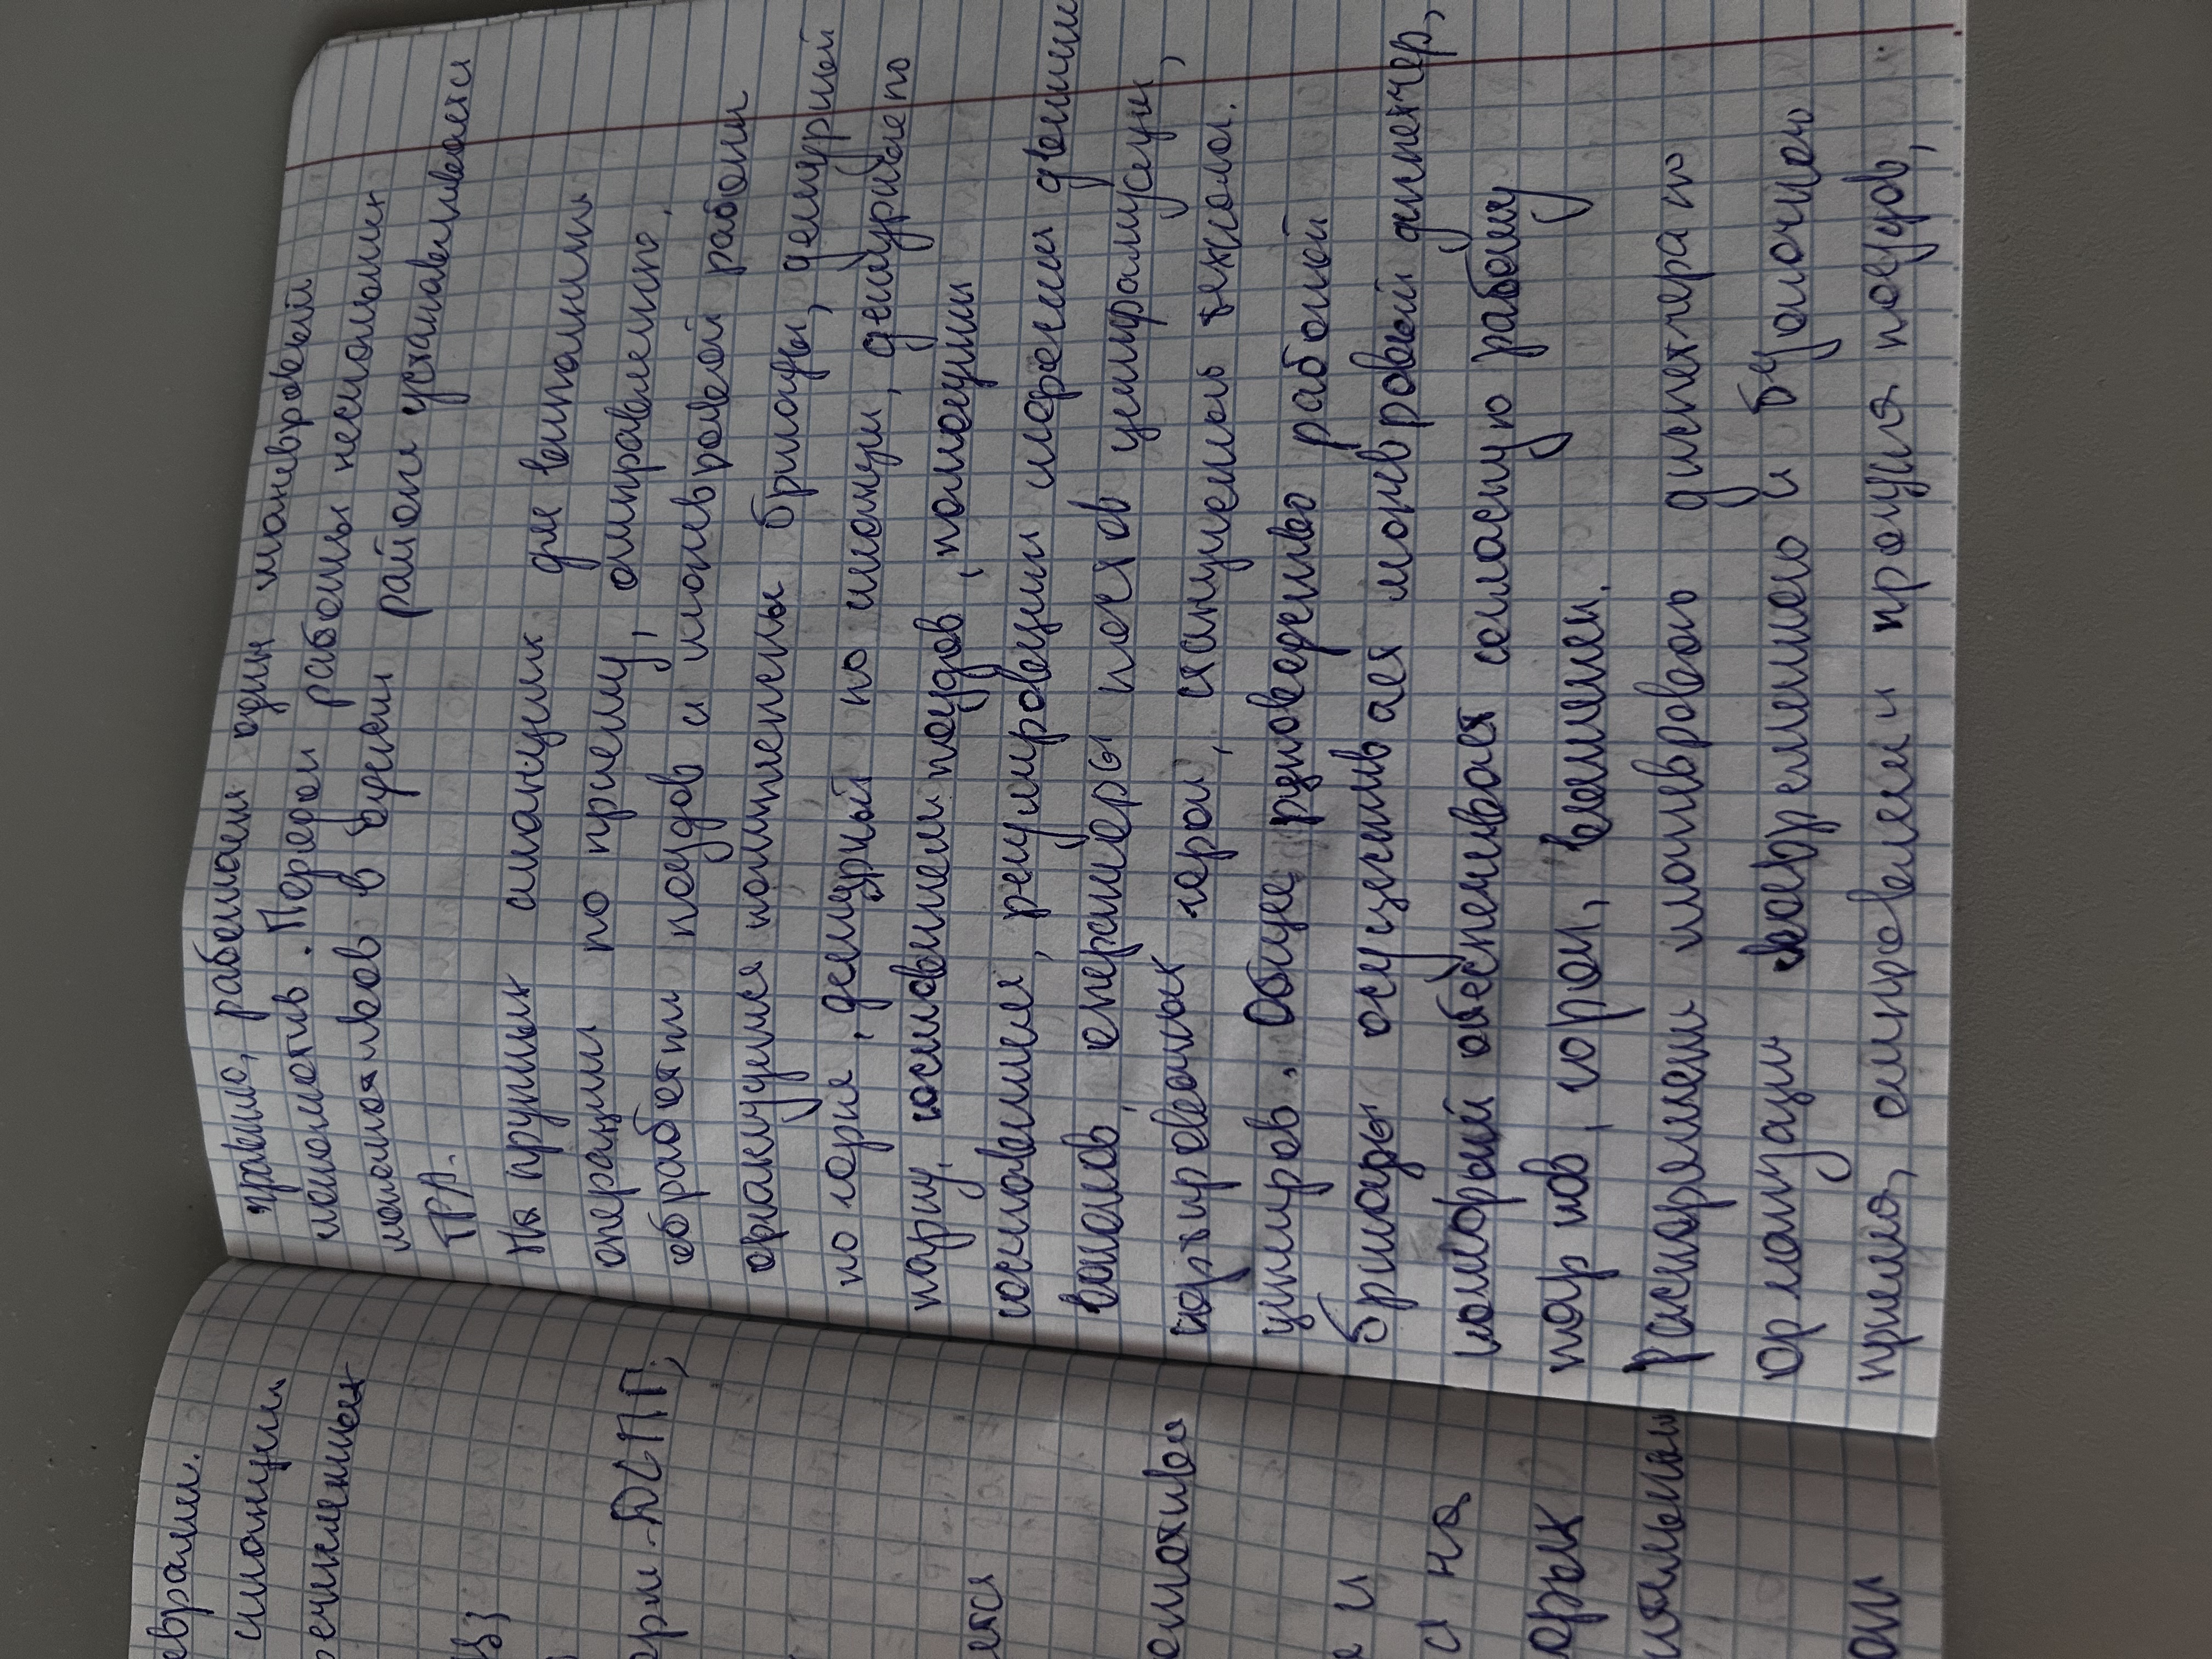 еврами.
станции
речисленных
ДСПП,
ется
и
на
правило, работает один маневровый
локомотив. Порядок работы нескольких
локомотивов в одном районе устанавливается
ТРА.
На крупных станциях для выполнения
операции по приему, отправлению,
обработки поездов и маневровой работы
организуется комплексные бригады, дежурный
по горке, дежурный по станции, дежурные по
парку, составители поездов, помощники
составителей, регулировщики скорости движения
вагонов, операторы постов централизации,
сортировочных горок, станционный технолог.
центров. Общее руководство работой
бригады осуществляет маневровый диспетчер,
который обеспечивает согласную работу
парков, горок, вытяжек.
Распоряжения маневрового диспетчера по
организации своевременного и безопасного
приема, отправления и пропуска поездов,